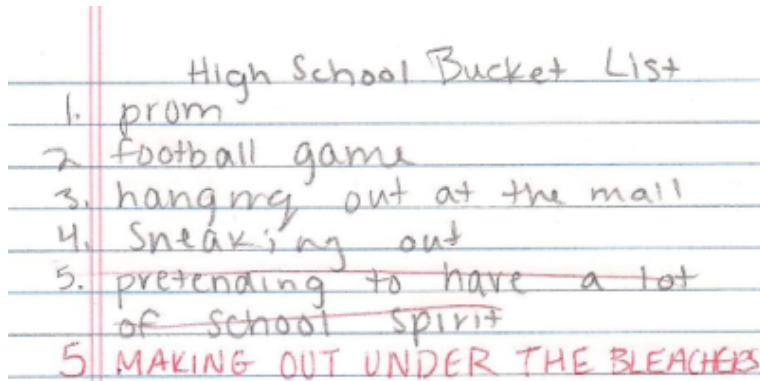 High School Bucket List
1. prom
2 football game
3. hanging out at the mall
4. Sneaking out
5. pretending to have a lot
of school spirit
5 MAKING OUT UNDER THE BLEACHERS